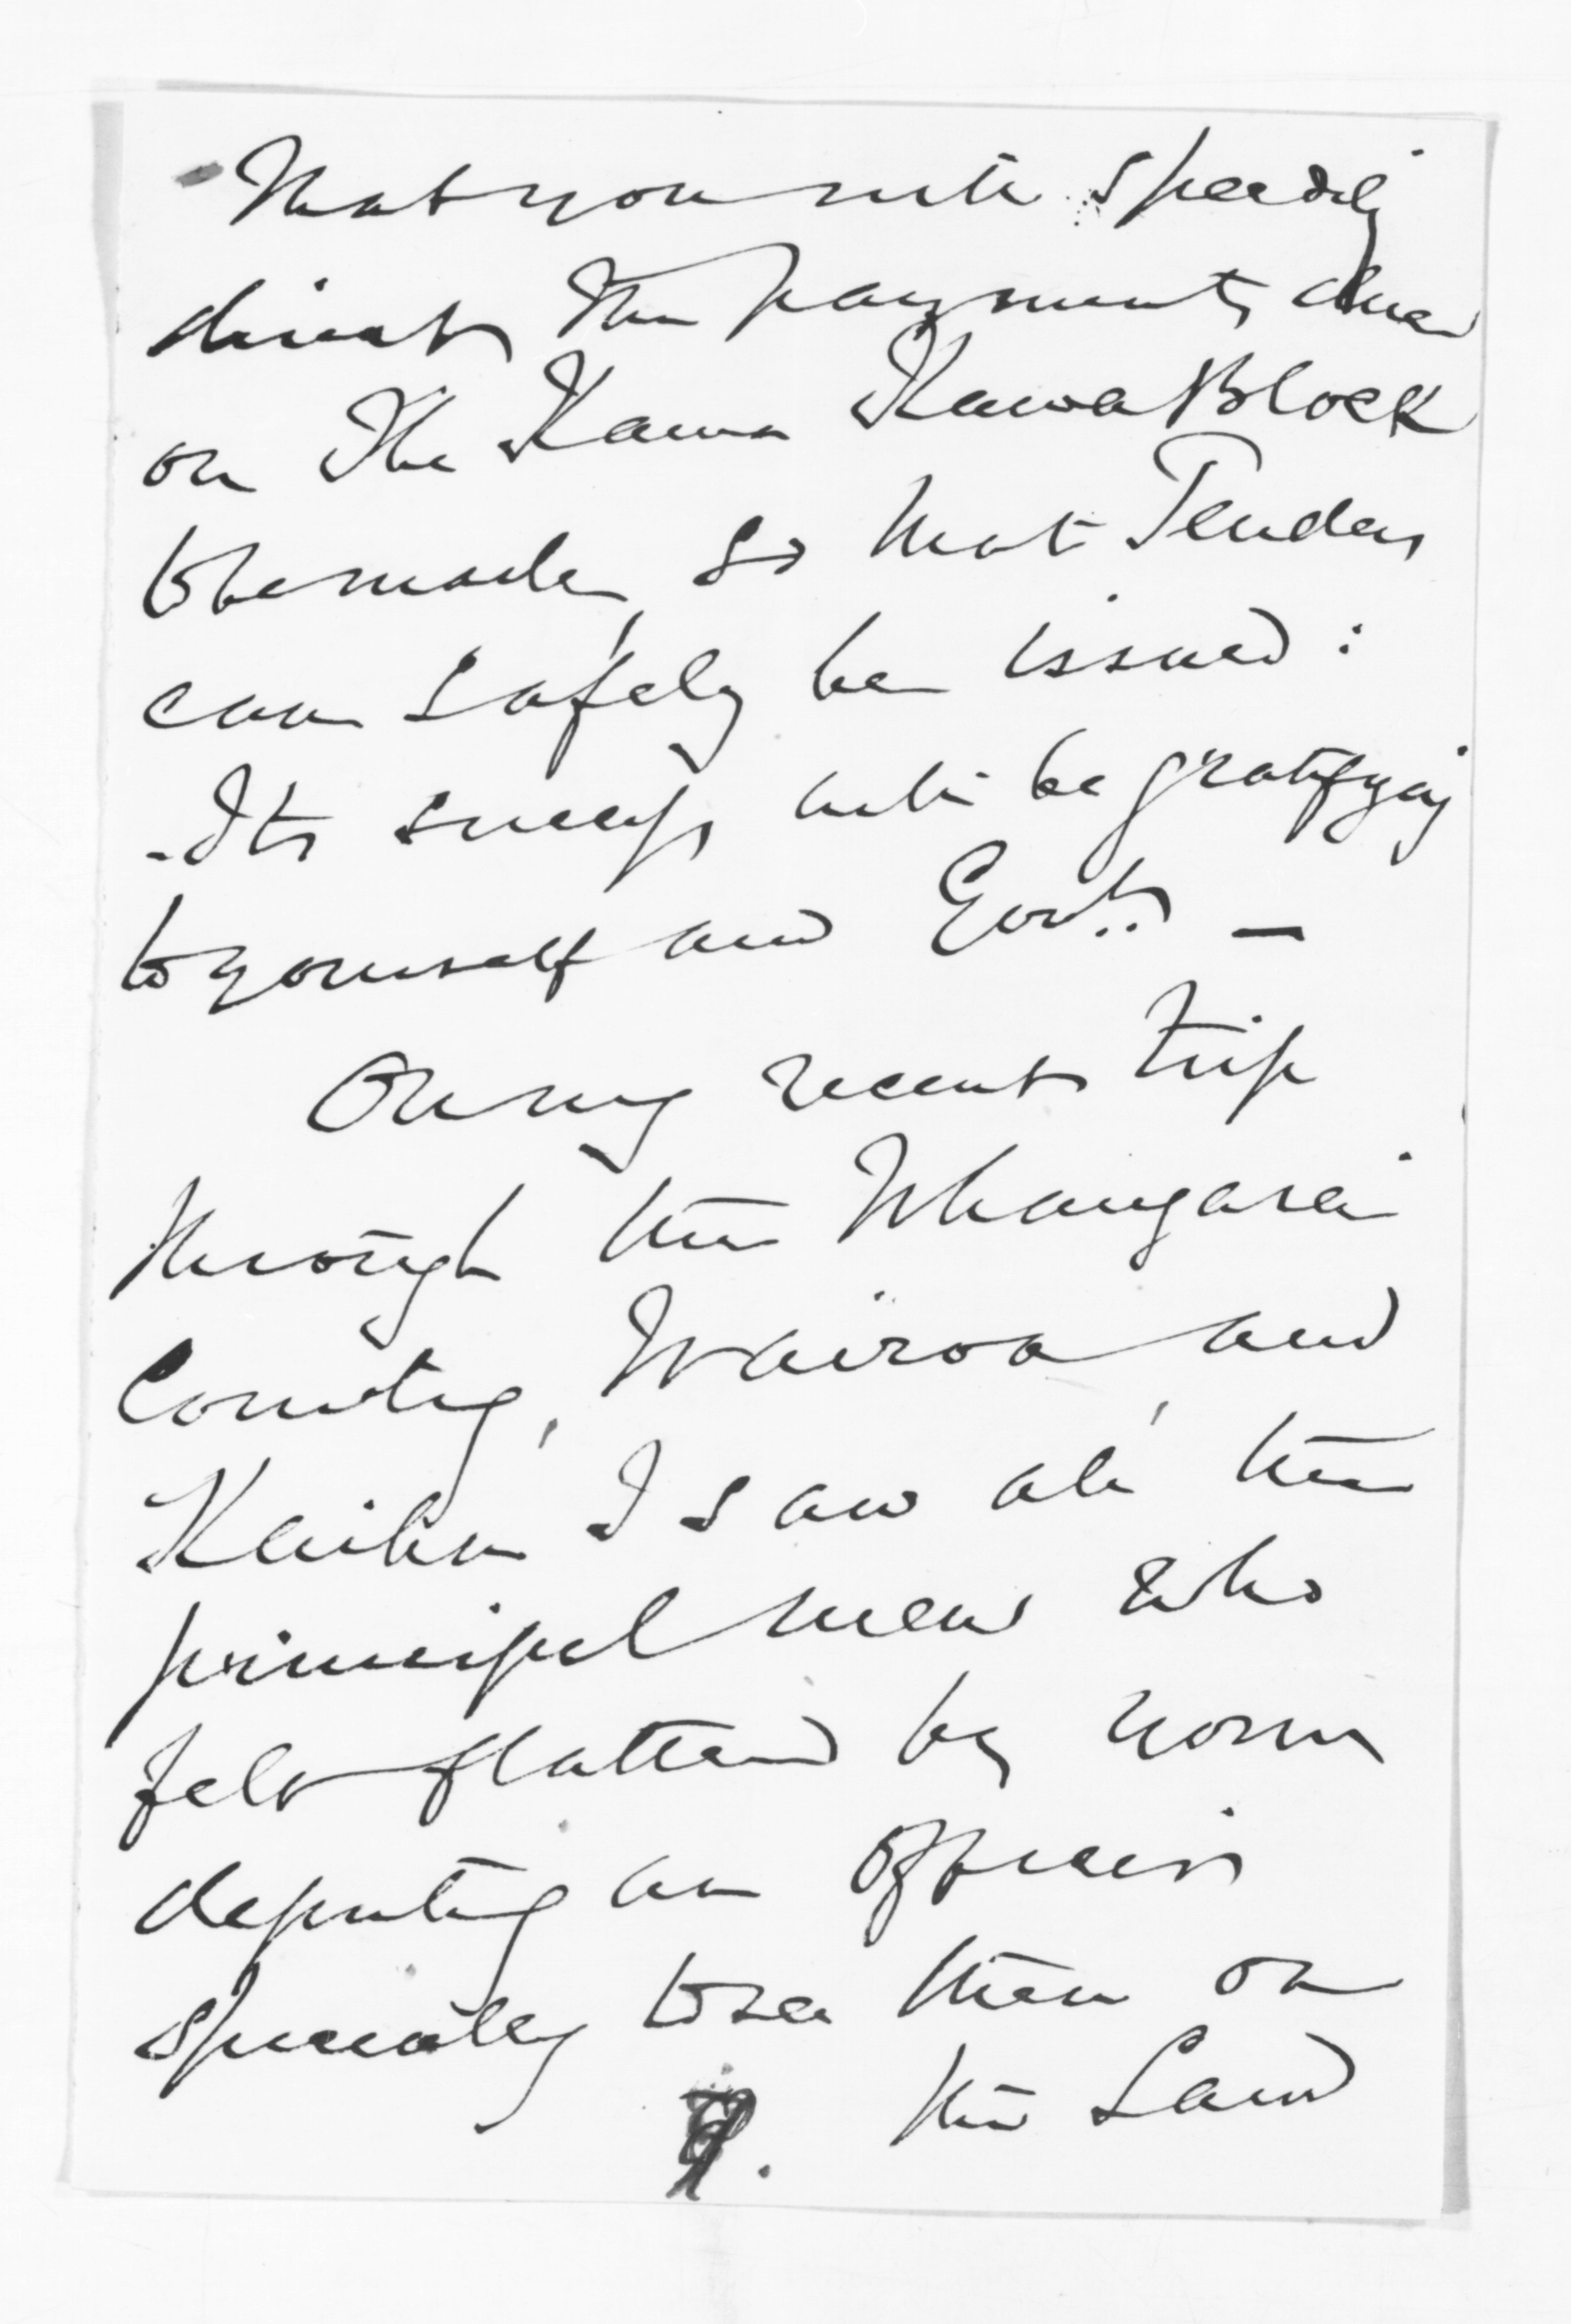 that you will speedily
direct the payments due
on the Kawa Kawa Block
to be made, so that Tenders
can safely be issued:
- Its success will be gratifying
to yourself and Govt. —
On my recent trip
through the Whangarei
County, Wairoa, and
Kaihu I saw all the
principal men who
felt flattered by your
deputing an officer
specially to see them on
the Land